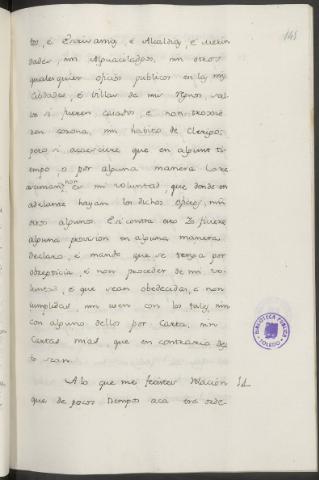 145
tos, é Escrivania, é Alcaldia, é Merin
dades, nin Alguacilados, nin otros
qualesquier oficios publicos en las mis
Cibdades, é Villas de mis Regnos, sal
vo si fueren casados, é non troxie
ren corona, nin habito de Clerigo;
pero si acaesciere que en algunt ti
empo, o por alguna manera
non es mi voluntad, que donde en
adelante hayan los dichos oficios, nin
otros algunos. E si contra esto Yo ficiere
alguna provision en alguna manera
declaro, é mando, que se tenga por
obrepticia, é non proceder de mi vo
luntad, é que sean obedecidas, é non
cumplidas, nin usen con los tales, nin
con alguno dellos por Carta, nin
Cartas mias, que en contrario des
to sean.
A lo que me fecistes relacion 51.
que de pocos tiempos acá tres orde-
BIBLIOTECA PUBLICA
TOLEDO